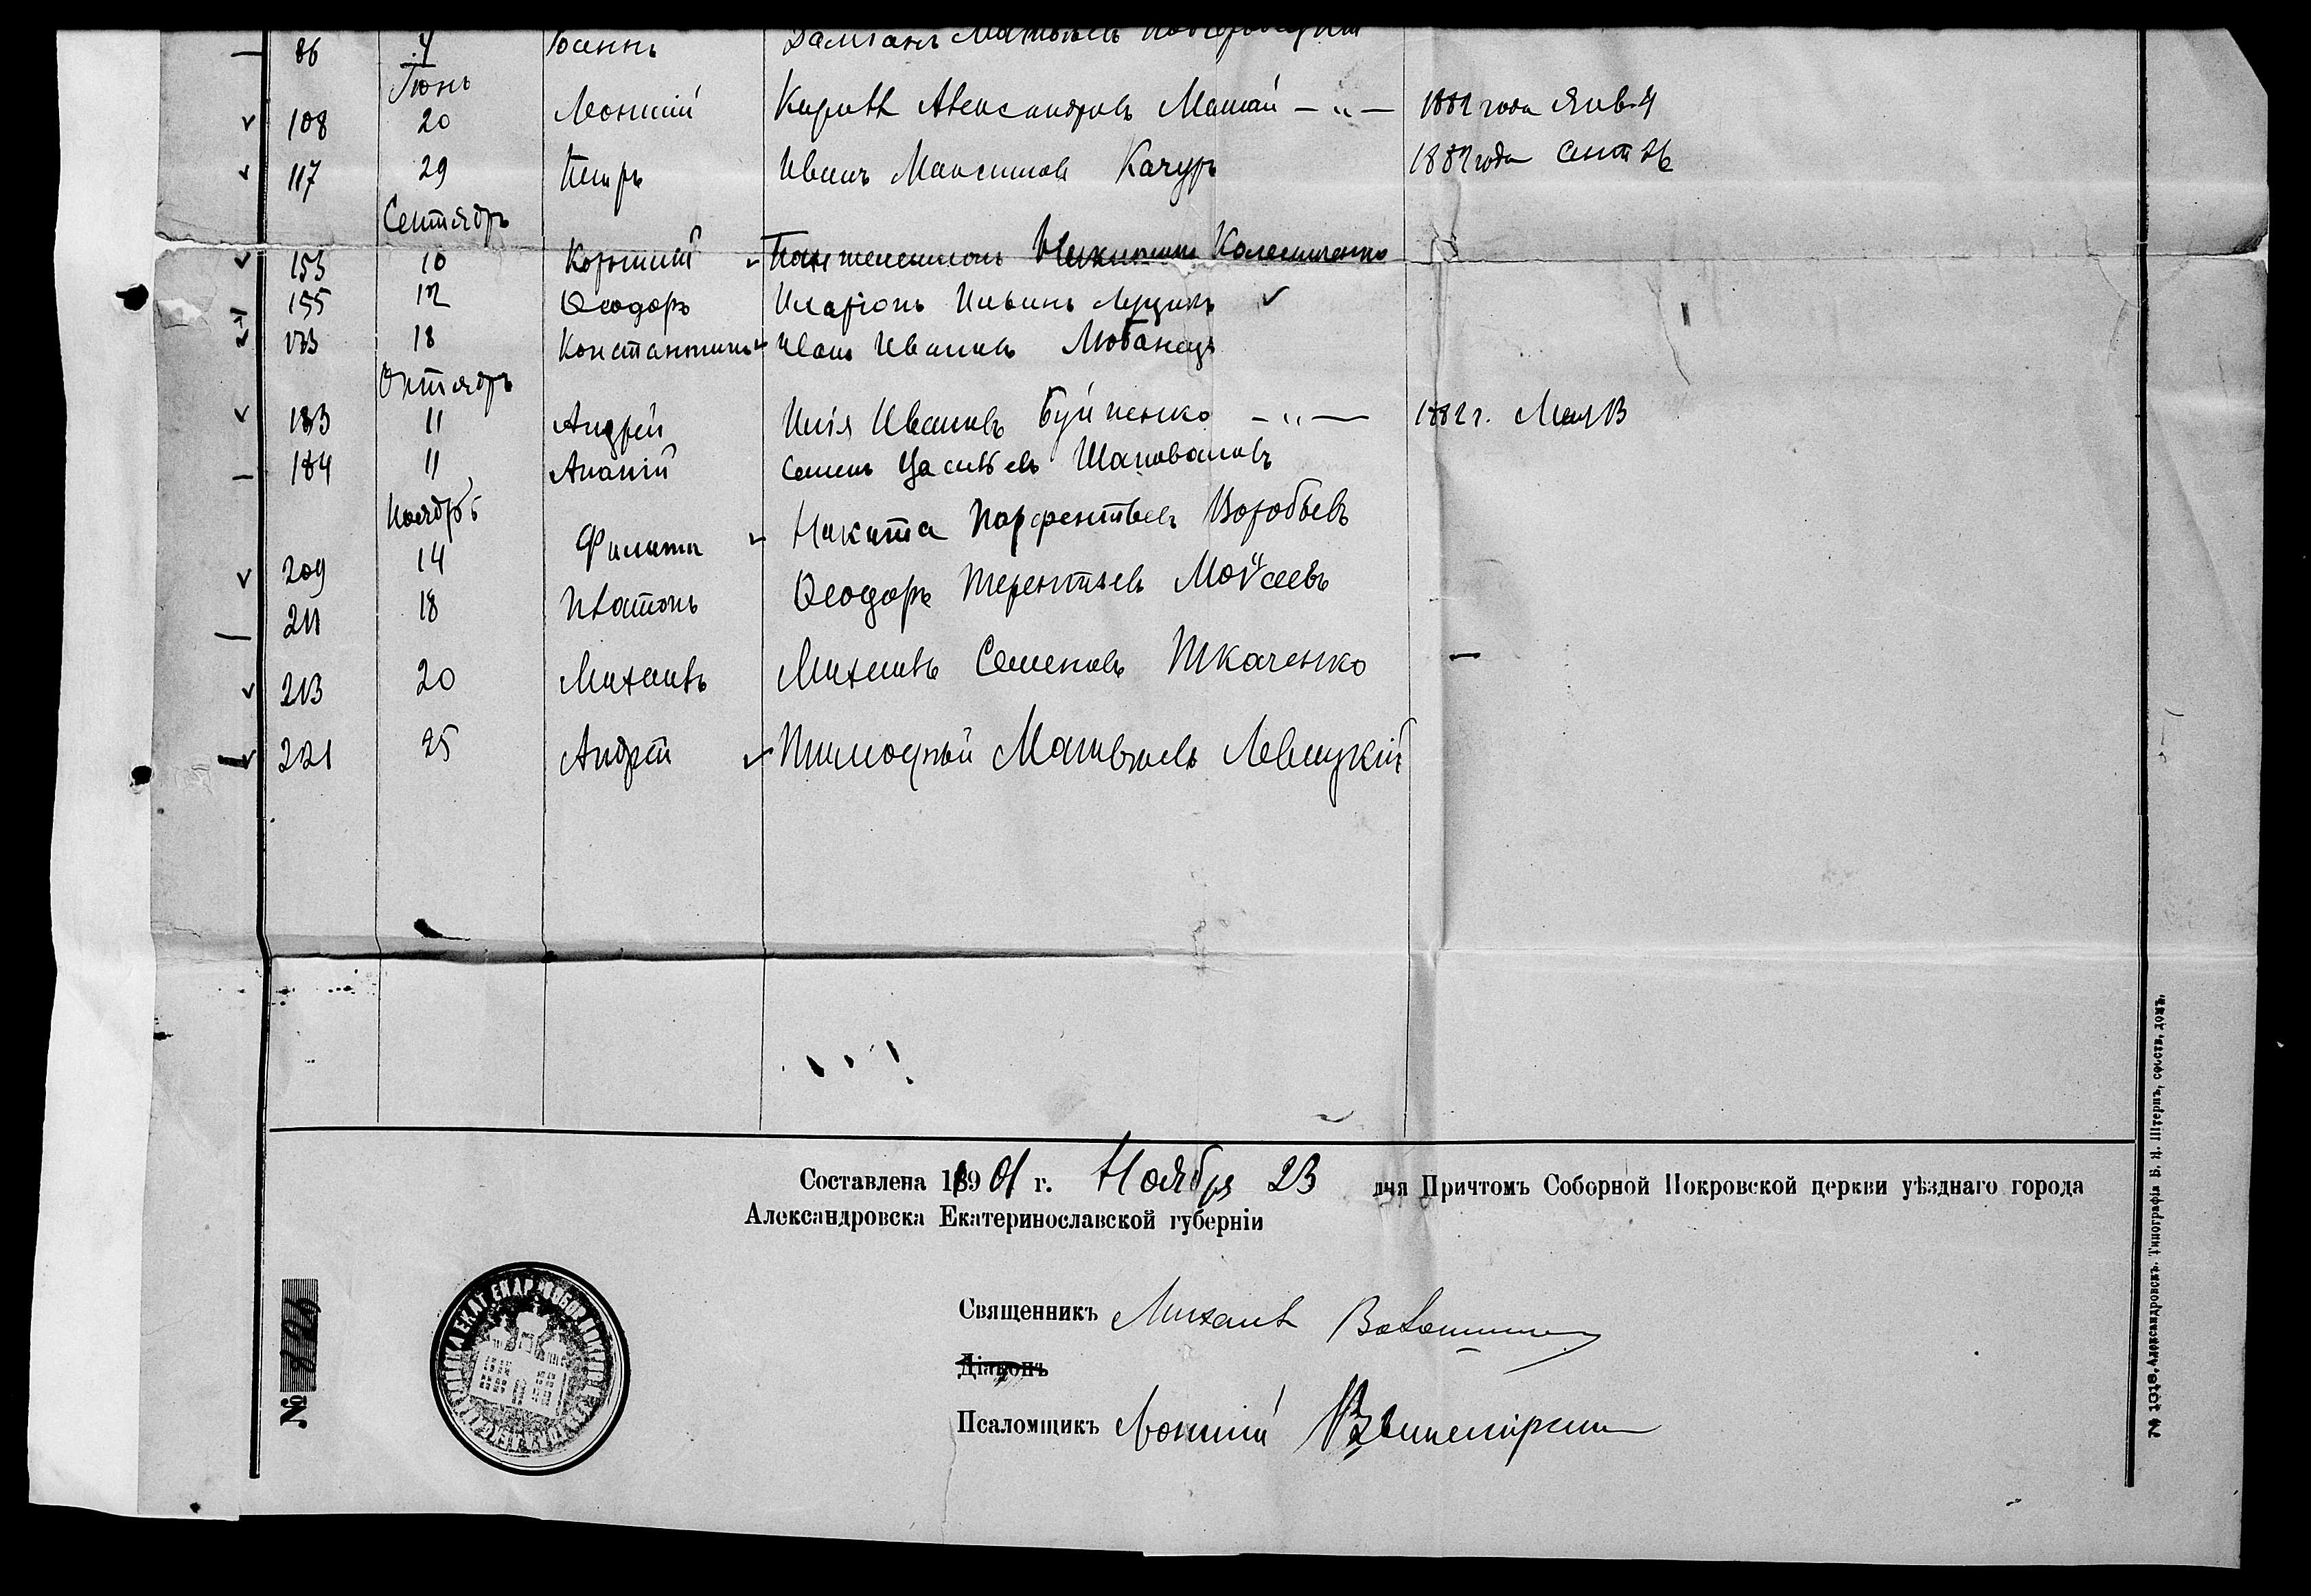 86 4 Іоаннъ
Іюнь
108 20 Леонтій Кириллъ Александровъ Мамай — „ — 1882 года Янв. 4
117 29 Петръ Иванъ Максимовъ Качуръ 1882 года Сент 26
Сентябрь
153 10 Корнилій Пантелеимонъ Никитинъ Колесниченко
155 12 Ѳеодоръ Иларіонъ Ильинъ Луценъ
173 18 Константинъ Иванъ Ивановъ Любанецъ
Октябрь
183 11 Андрей Илія Ивановъ Буйненко — „ — 1882 г. Мая 13
184 11 Ананій Семенъ Васильевъ Шаповаловъ
Ноябрь
209 14 Филиппъ Никита Парфентьевъ Воробьевъ
211 18 Платонъ Ѳеодоръ Терентьевъ Мойсеевъ
213 20 Михаилъ Михаилъ Семеновъ Ткаченко
221 25 Андрей Тимоѳей Матвѣевъ Левицкій
Составлена 1901 г. Ноября 23 дня Причтомъ Соборной Покровской церкви уѣзднаго города
Александровска Екатеринославской губерніи
Священникъ Михаилъ
Діаконъ
Псаломщикъ Леонтій
№
№ 1018. Александровскъ. Типографія Б. Я. Штернъ, собств. домъ.